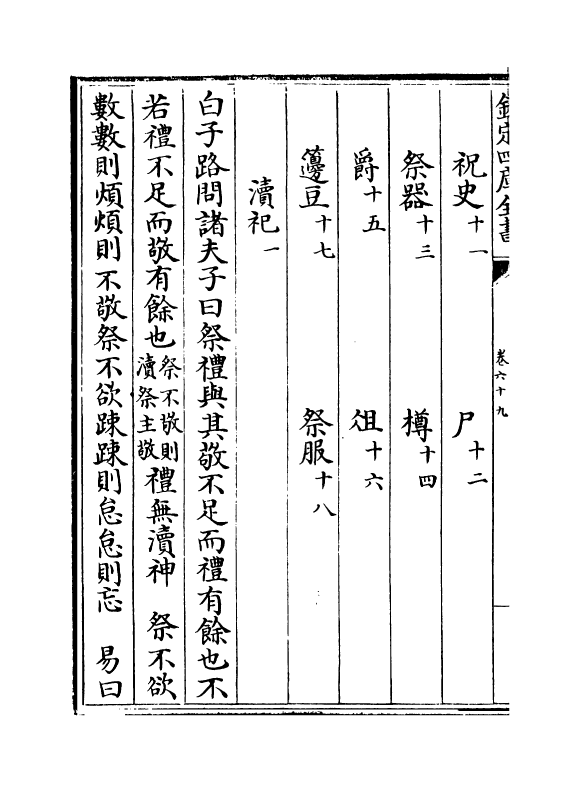 欽定四庫全書
卷六十九
祝史十一 尸十二
祭器十三 樽十四
爵十五 俎十六
籩豆十七 祭服十八
瀆祀一
白子路問諸夫子曰祭禮與其敬不足而禮有餘也不
若禮不足而敬有餘也祭不敬則瀆祭主敬禮無瀆神 祭不欲
數數則煩煩則不敬祭不欲踈踈則怠怠則忘 易曰